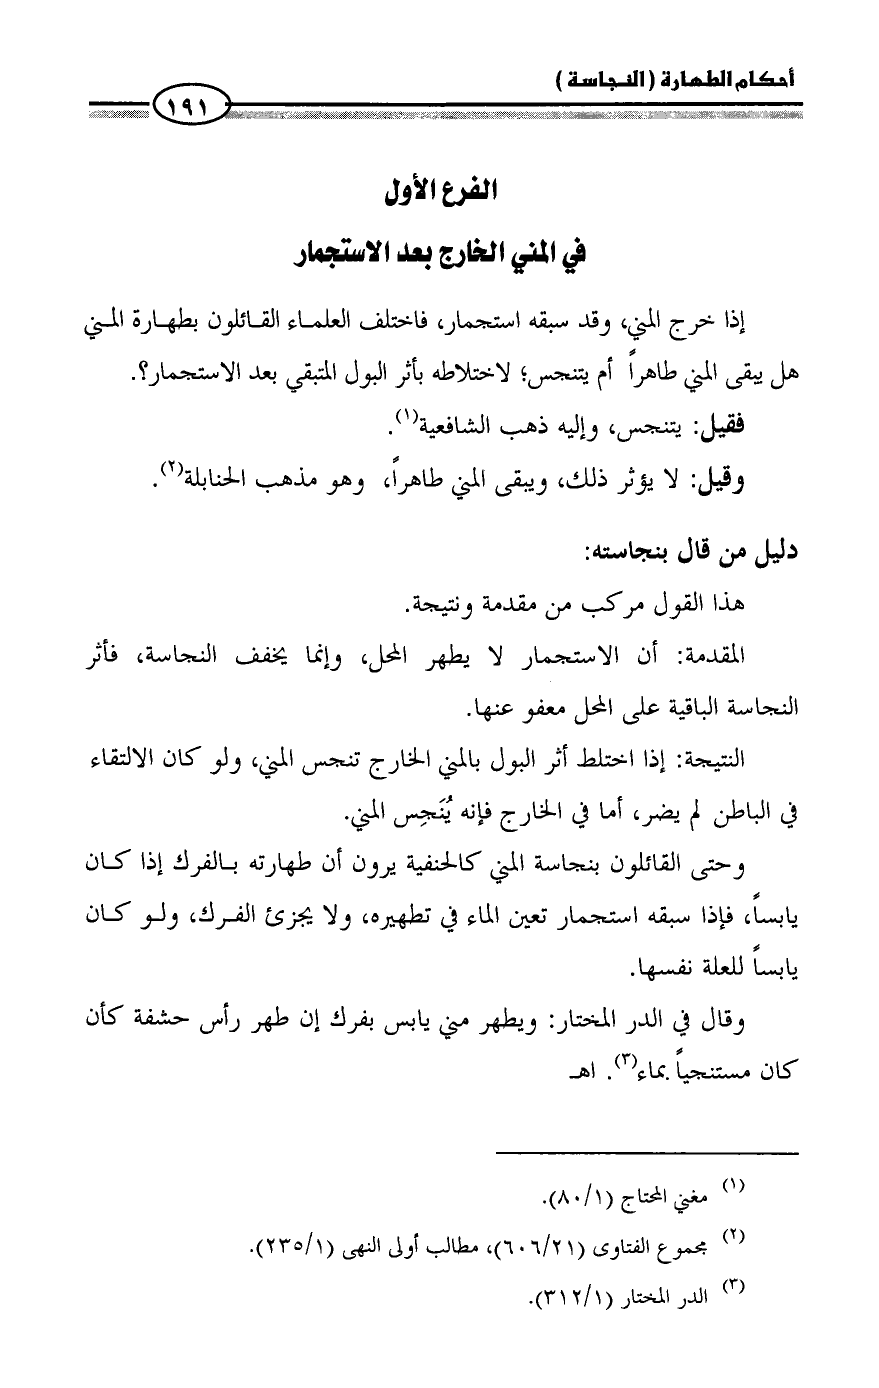 أحكام الطهارة (النجاسة)
١٩١
الفرع الأول
في المني الخارج بعد الاستجمار
إذا خرج المني، وقد سبقه استجمار، فاختلف العلماء القائلون بطهارة المني
هل يبقى المني طاهراً أم يتنجس؛ لاختلاطه بأثر البول المتبقي بعد الاستجمار؟.
فقيل: يتنجس، وإليه ذهب الشافعية(١).
وقيل: لا يؤثر ذلك، ويبقى المني طاهراً، وهو مذهب الحنابلة(٢).
دليل من قال بنجاسته:
هذا القول مركب من مقدمة ونتيجة.
المقدمة: أن الاستجمار لا يطهر المحل، وإنما يخفف النجاسة، فأثر
النجاسة الباقية على المحل معفو عنها.
النتيجة: إذا اختلط أثر البول بالمني الخارج تنجس المني، ولو كان الالتقاء
في الباطن لم يضر، أما في الخارج فإنه يُنَجِس المني.
وحتى القائلون بنجاسة المني كالحنفية يرون أن طهارته بالفرك إذا كان
يابساً، فإذا سبقه استجمار تعين الماء في تطهيره، ولا يجزئ الفرك، ولو كان
يابساً للعلة نفسها.
وقال في الدر المختار: ويطهر مني يابس بفرك إن طهر رأس حشفة كأن
كان مستنجياً بماء(٣). اهـ
(١) مغني المحتاج (٨٠/١).
(٢) مجموع الفتاوى (٦٠٦/٢١)، مطالب أولى النهى (٢٣٥/١).
(٣) الدر المختار (٣١٢/١).